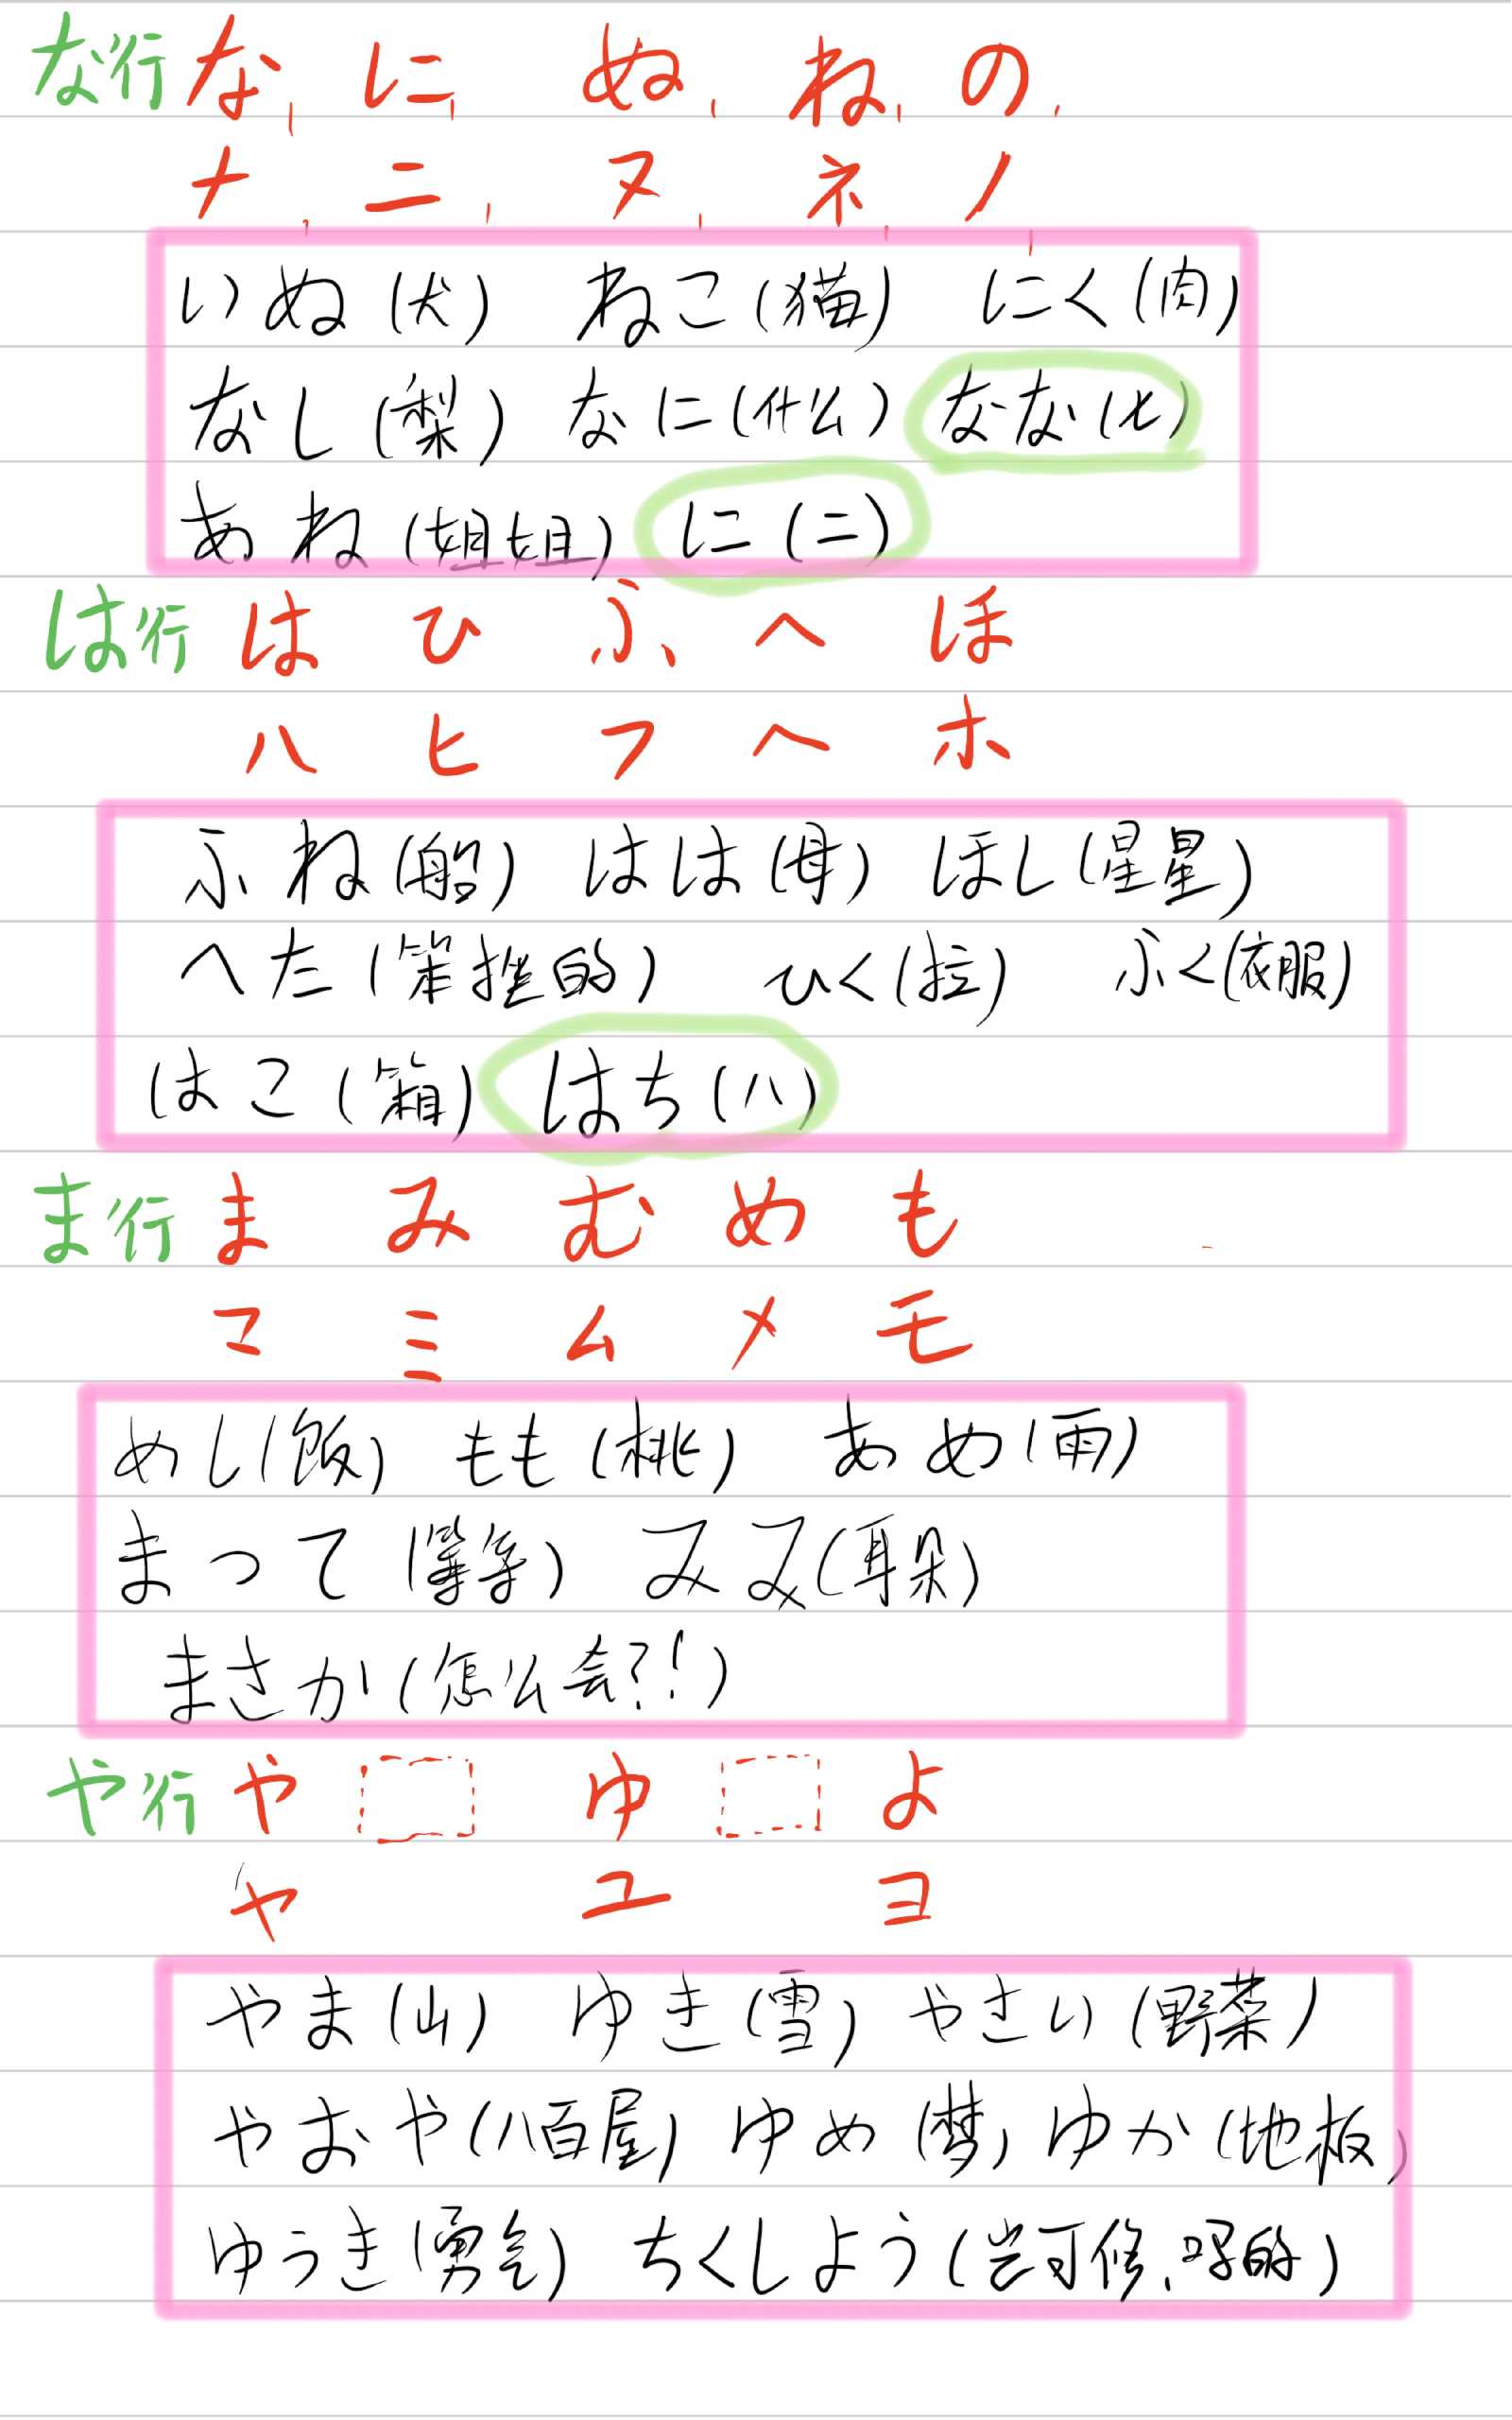 な行 な、に、ぬ、ね、の、
ナ、ニ、ヌ、ネ、ノ、
いぬ(犬) ねこ(猫) にく(肉)
なし(梨) なに(什么) なな(七)
あね(姐姐) に(二)
は行 は ひ ふ へ ほ
ハ ヒ フ ヘ ホ
ふね(船) はは(母) ほし(星星)
へた(笨拙的) ひく(拉) ふく(衣服)
はこ(箱) はち(八)
ま行 ま み む め も
マ ミ ム メ モ
めし(饭) もも(桃) あめ(雨)
まって(等等) みみ(耳朵)
まさか(怎么会?!)
や行 や ゆ よ
ヤ ユ ヨ
やま(山) ゆき(雪) やさい(野菜)
やおや(八百屋) ゆめ(梦) ゆか(地板)
ゆうき(勇気) ちくしよう(岂可修、)